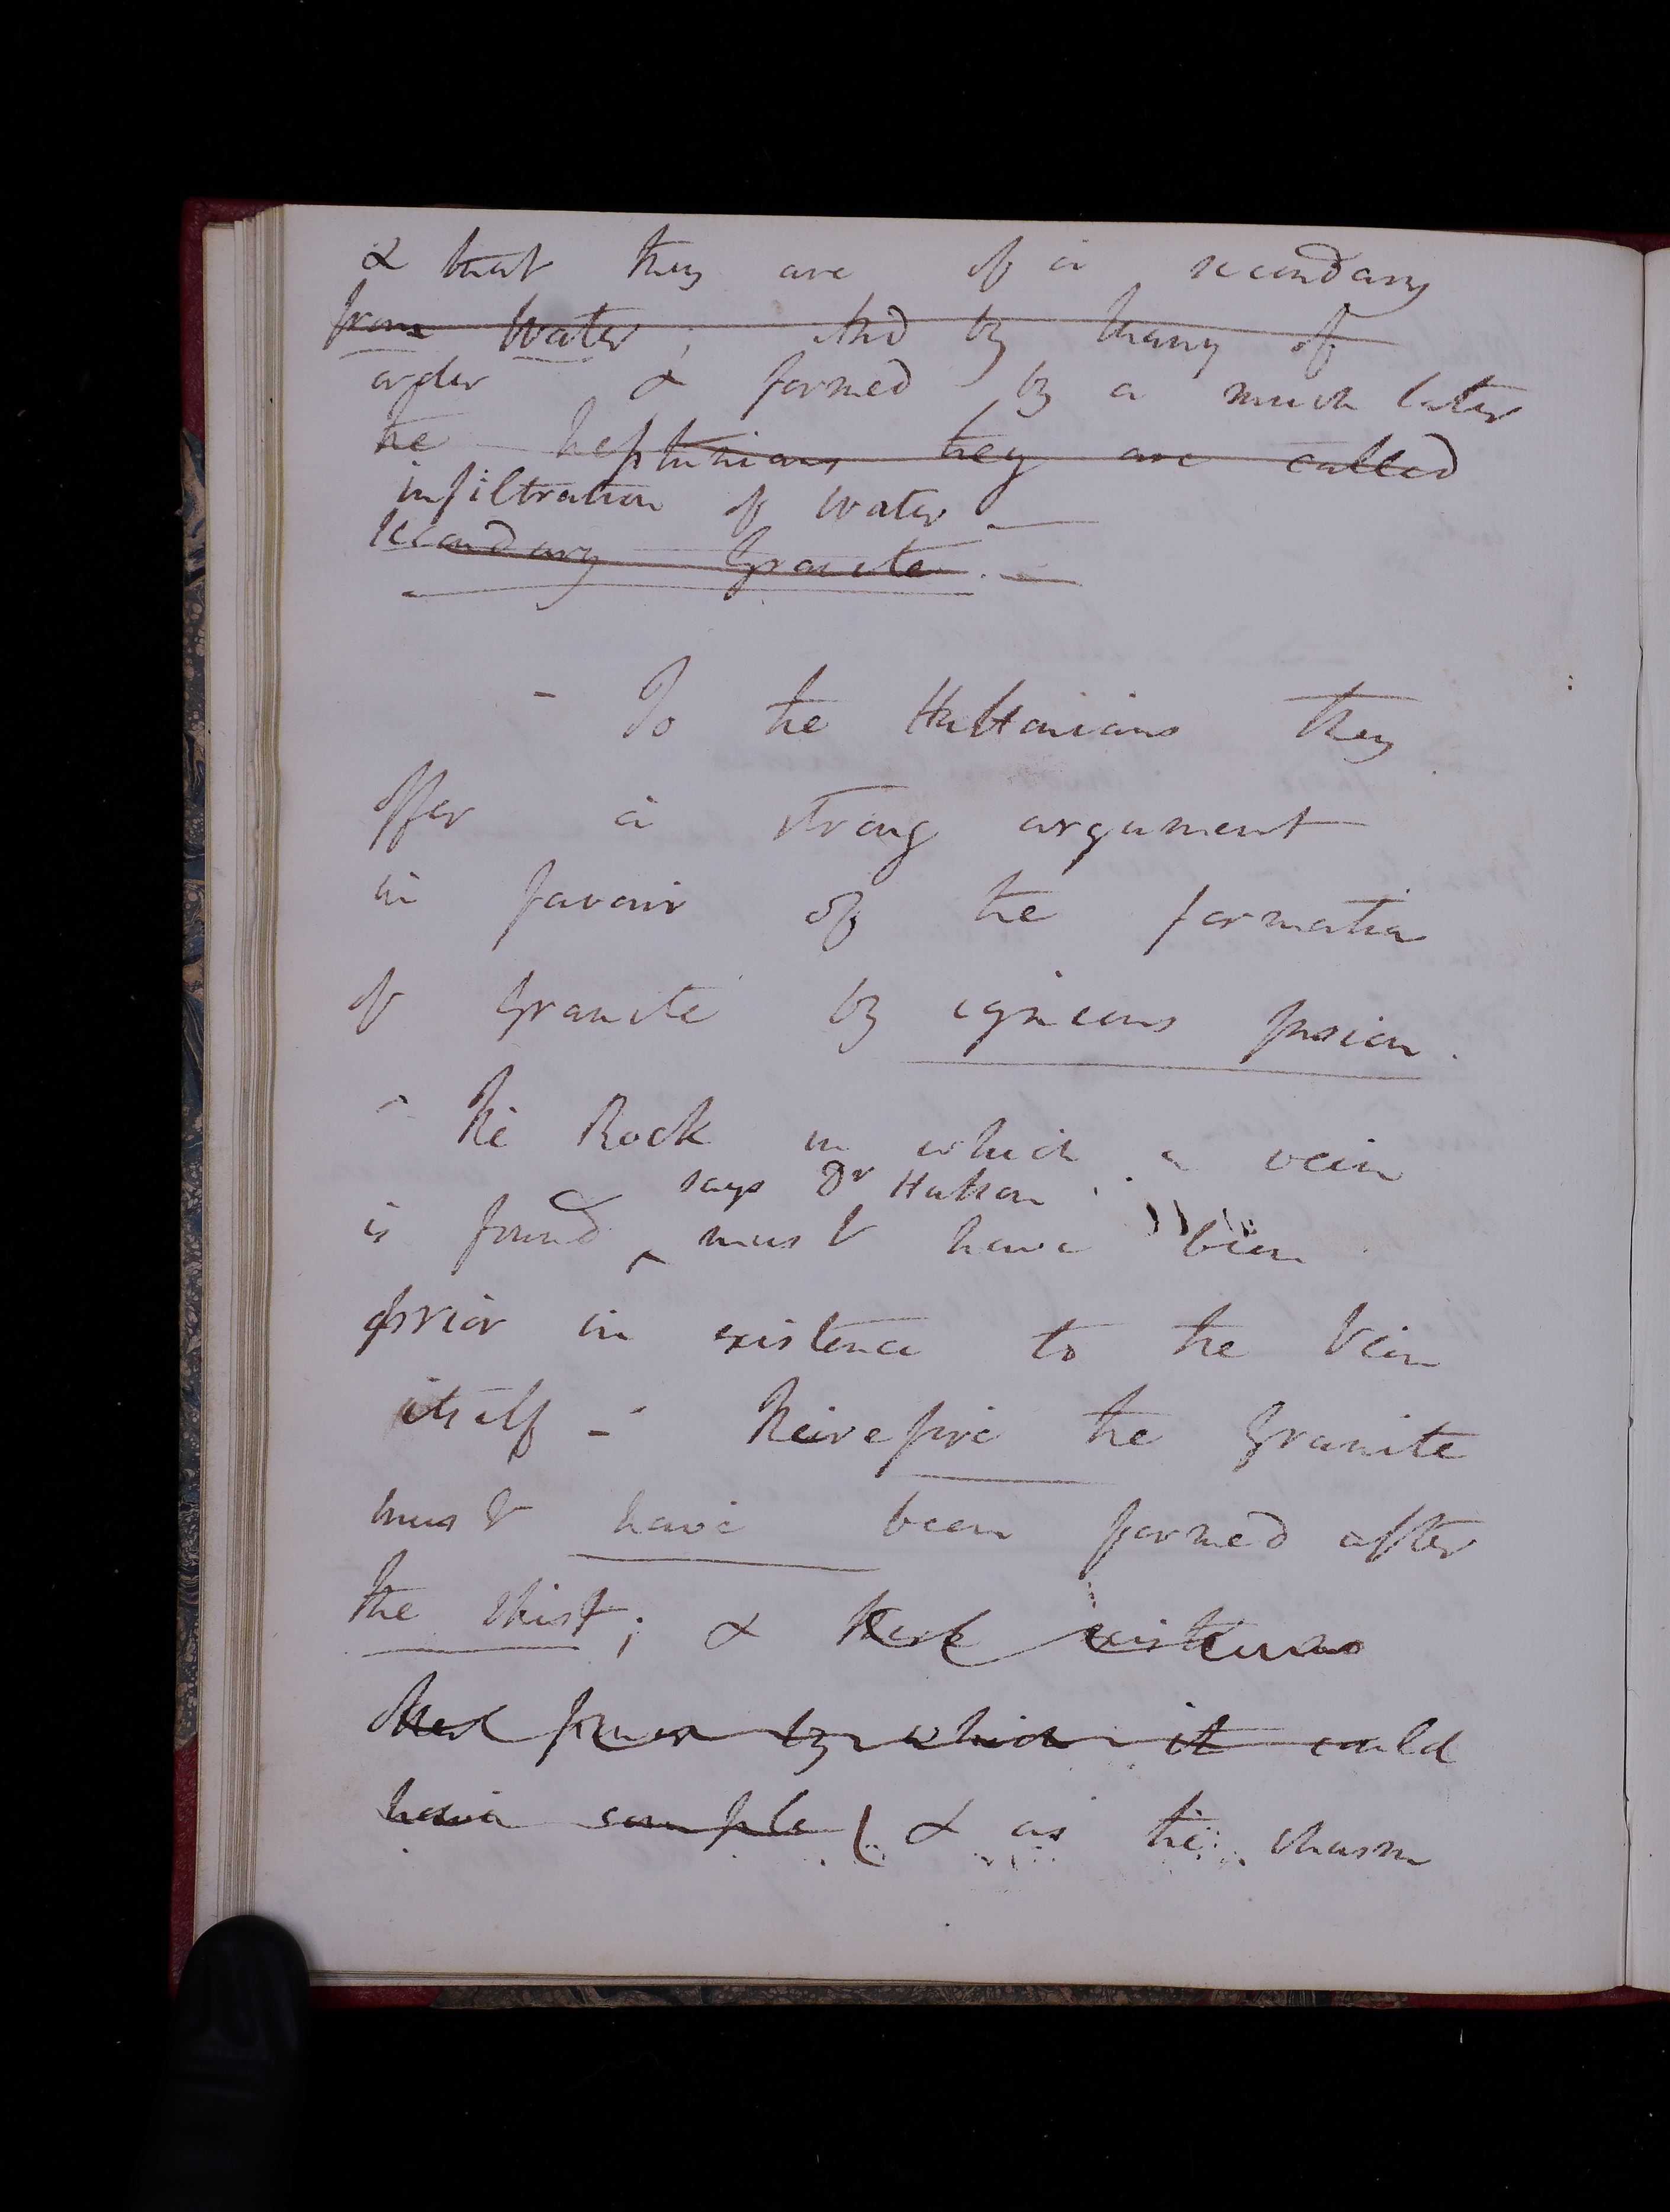 & that they are of a secondary
from Water; And by many of
order & formed by a much later
the Neptunians they are called
infiltration of Water —
secondary Granite. —
- To the Huttonians they
offer a strong argument
in favour of the formation
of Granite by igneous fusion.
- The Rock in which a vein
says Dr Hutton
is found ^ must have been
prior in existence to the Vein
itself - Therefore the Granite
must have been formed after
the shist; & there exists no
other power by which it could
have & as the chasm